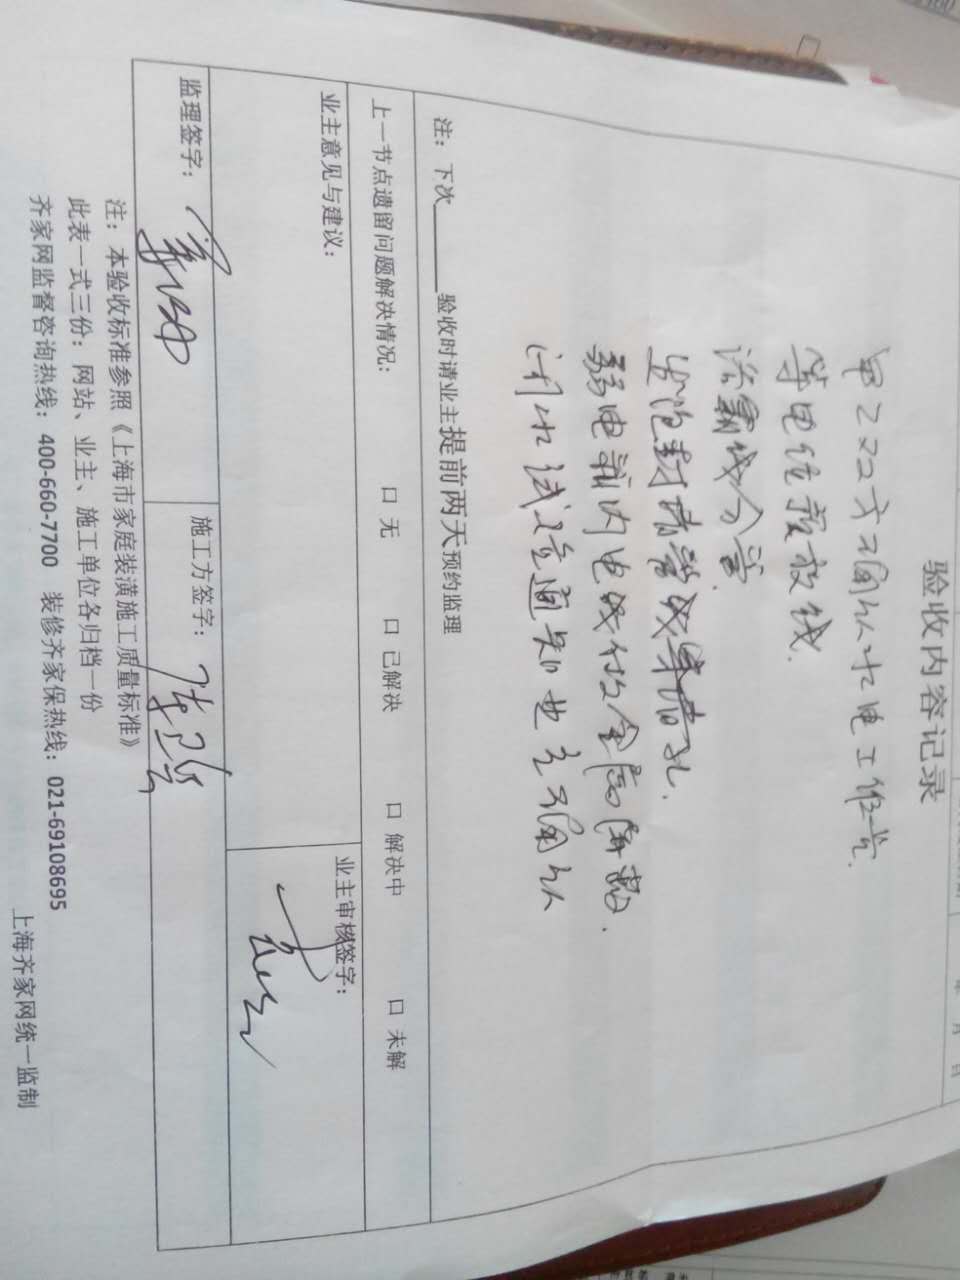 验收内容记录
甲乙双方确认水电工作量.
等电位须放线.
浴霸线分管.
安泡封堵管线
弱电箱内电线付以金属屏蔽.
闭水试验通知业主确认
注：下次______验收时请业主提前两天预约监理
上一节点遗留问题解决情况： 口 无 口 已解决 口 解决中 口 未解
业主意见与建议：
业主审核签字：
监理签字： 施工方签字：
注：本验收标准参照《上海市家庭装潢施工质量标准》
此表一式三份：网站、业主、施工单位各归档一份
齐家网监督咨询热线：400-660-7700 装修齐家保热线：021-69108695
上海齐家网统一监制
年 月 日